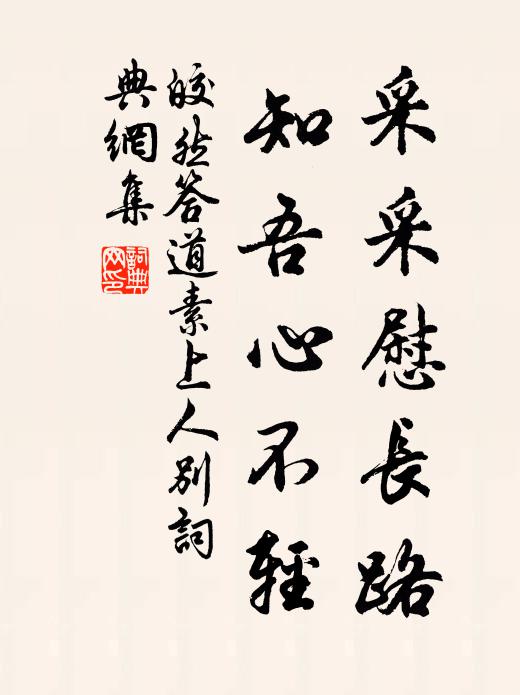 采采慰長路
知吾心不輕
皎然答道素上人別詞
典網集
詞典
网印